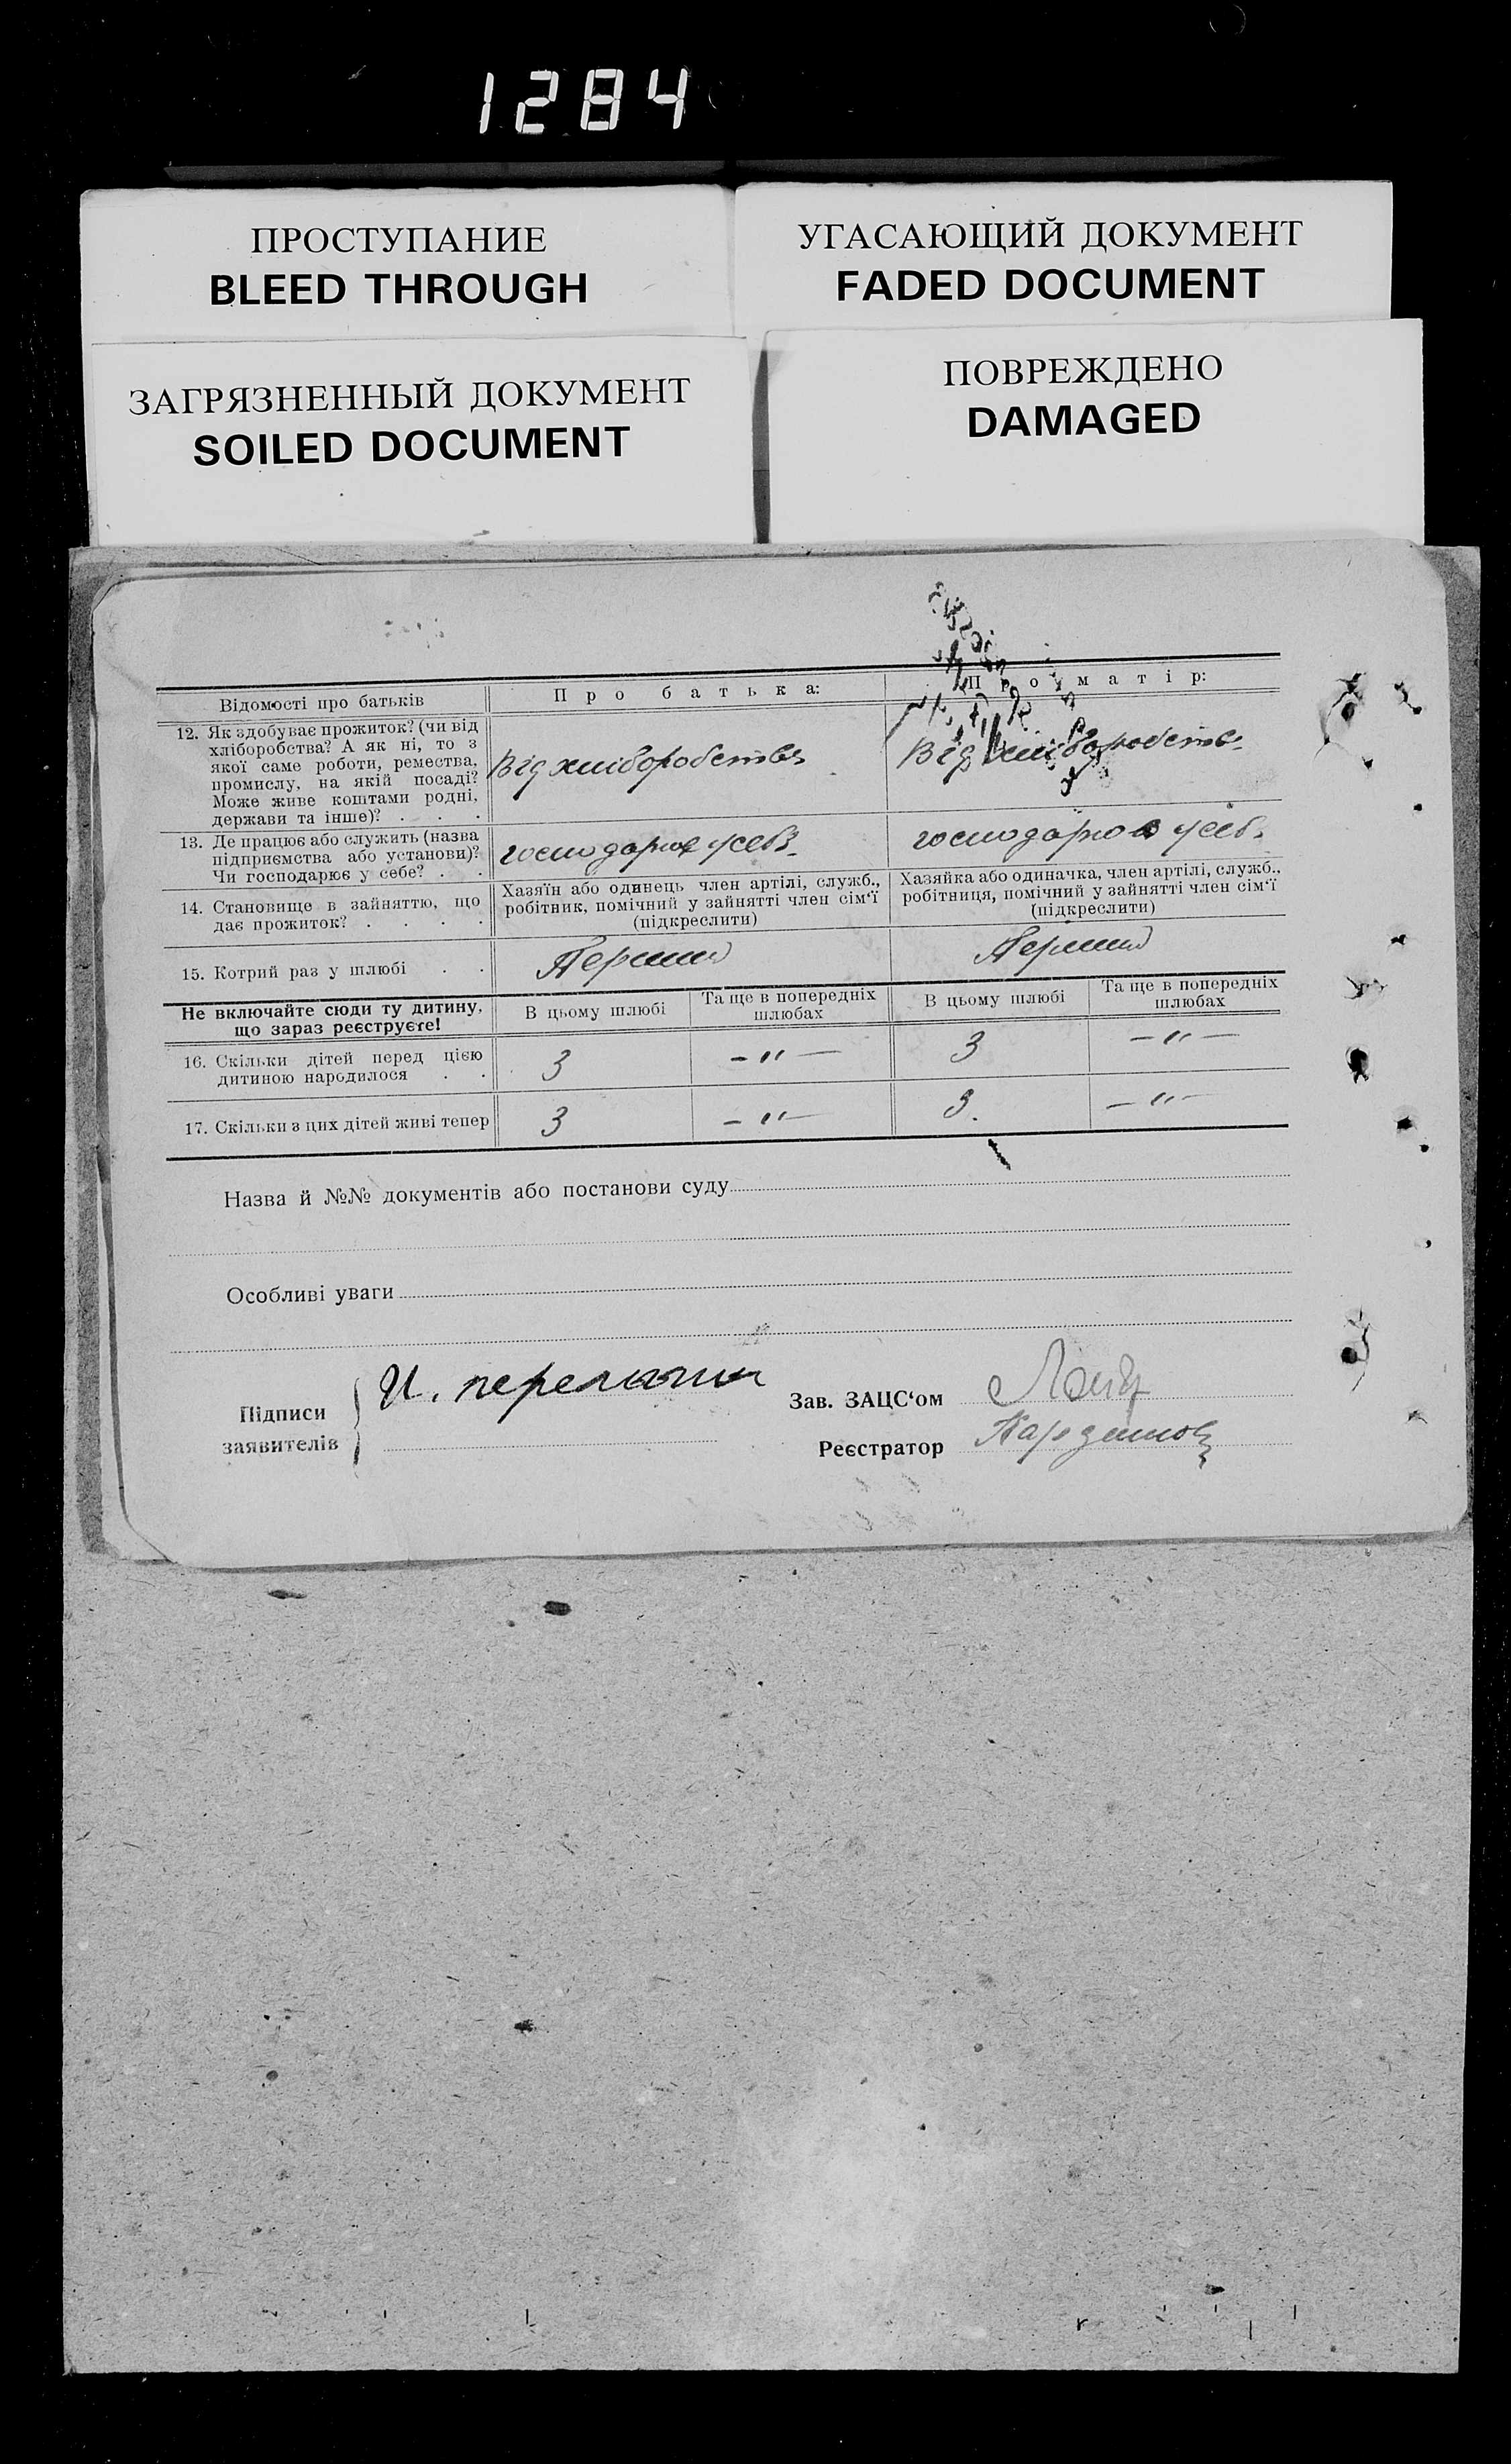 1284
ПРОСТУПАНИЕ
BLEED THROUGH
УГАСАЮЩИЙ ДОКУМЕНТ
FADED DOCUMENT
ЗАГРЯЗНЕННЫЙ ДОКУМЕНТ
SOILED DOCUMENT
ПОВРЕЖДЕНО
DAMAGED
Відомості про батьків
Про батька:
Про матір:
12. Як здобуває прожиток? (чи від
хліборобства? А як ні, то з
якої саме роботи, ремества,
промислу, на якій посаді?
Може живе коштами родні,
держави та інше)? . . .
Від хліборобства
Від хліборобств.
13. Де працює або служить (назва
підприємства або установи)?
Чи господарює у себе? . .
господарює у себ
господарю у себ.
14. Становище в зайняттю, що
дає прожиток? . . . .
Хазяїн або одинець член артілі, служб.,
робітник, помічний у зайнятті член сім‘ї
(підкреслити)
Хазяйка або одиначка, член артілі, служб.,
робітниця, помічний у зайнятті член сім‘ї
(підкреслити)
15. Котрий раз у шлюбі . .
Перший
Перший
Не включайте сюди ту дитину,
що зараз реєструєте!
В цьому шлюбі
Та ще в попередніх
шлюбах
В цьому шлюбі
Та ще в попередніх
шлюбах
16. Скільки дітей перед цією
дитиною народилося . .
3
– " —
3
– " —
17. Скільки з цих дітей живі тепер
3
– " —
3.
– " —
Назва й №№ документів або постанови суду
Особливі уваги
Підписи
заявителів
И.
Зав. ЗАЦС‘ом
Реєстратор